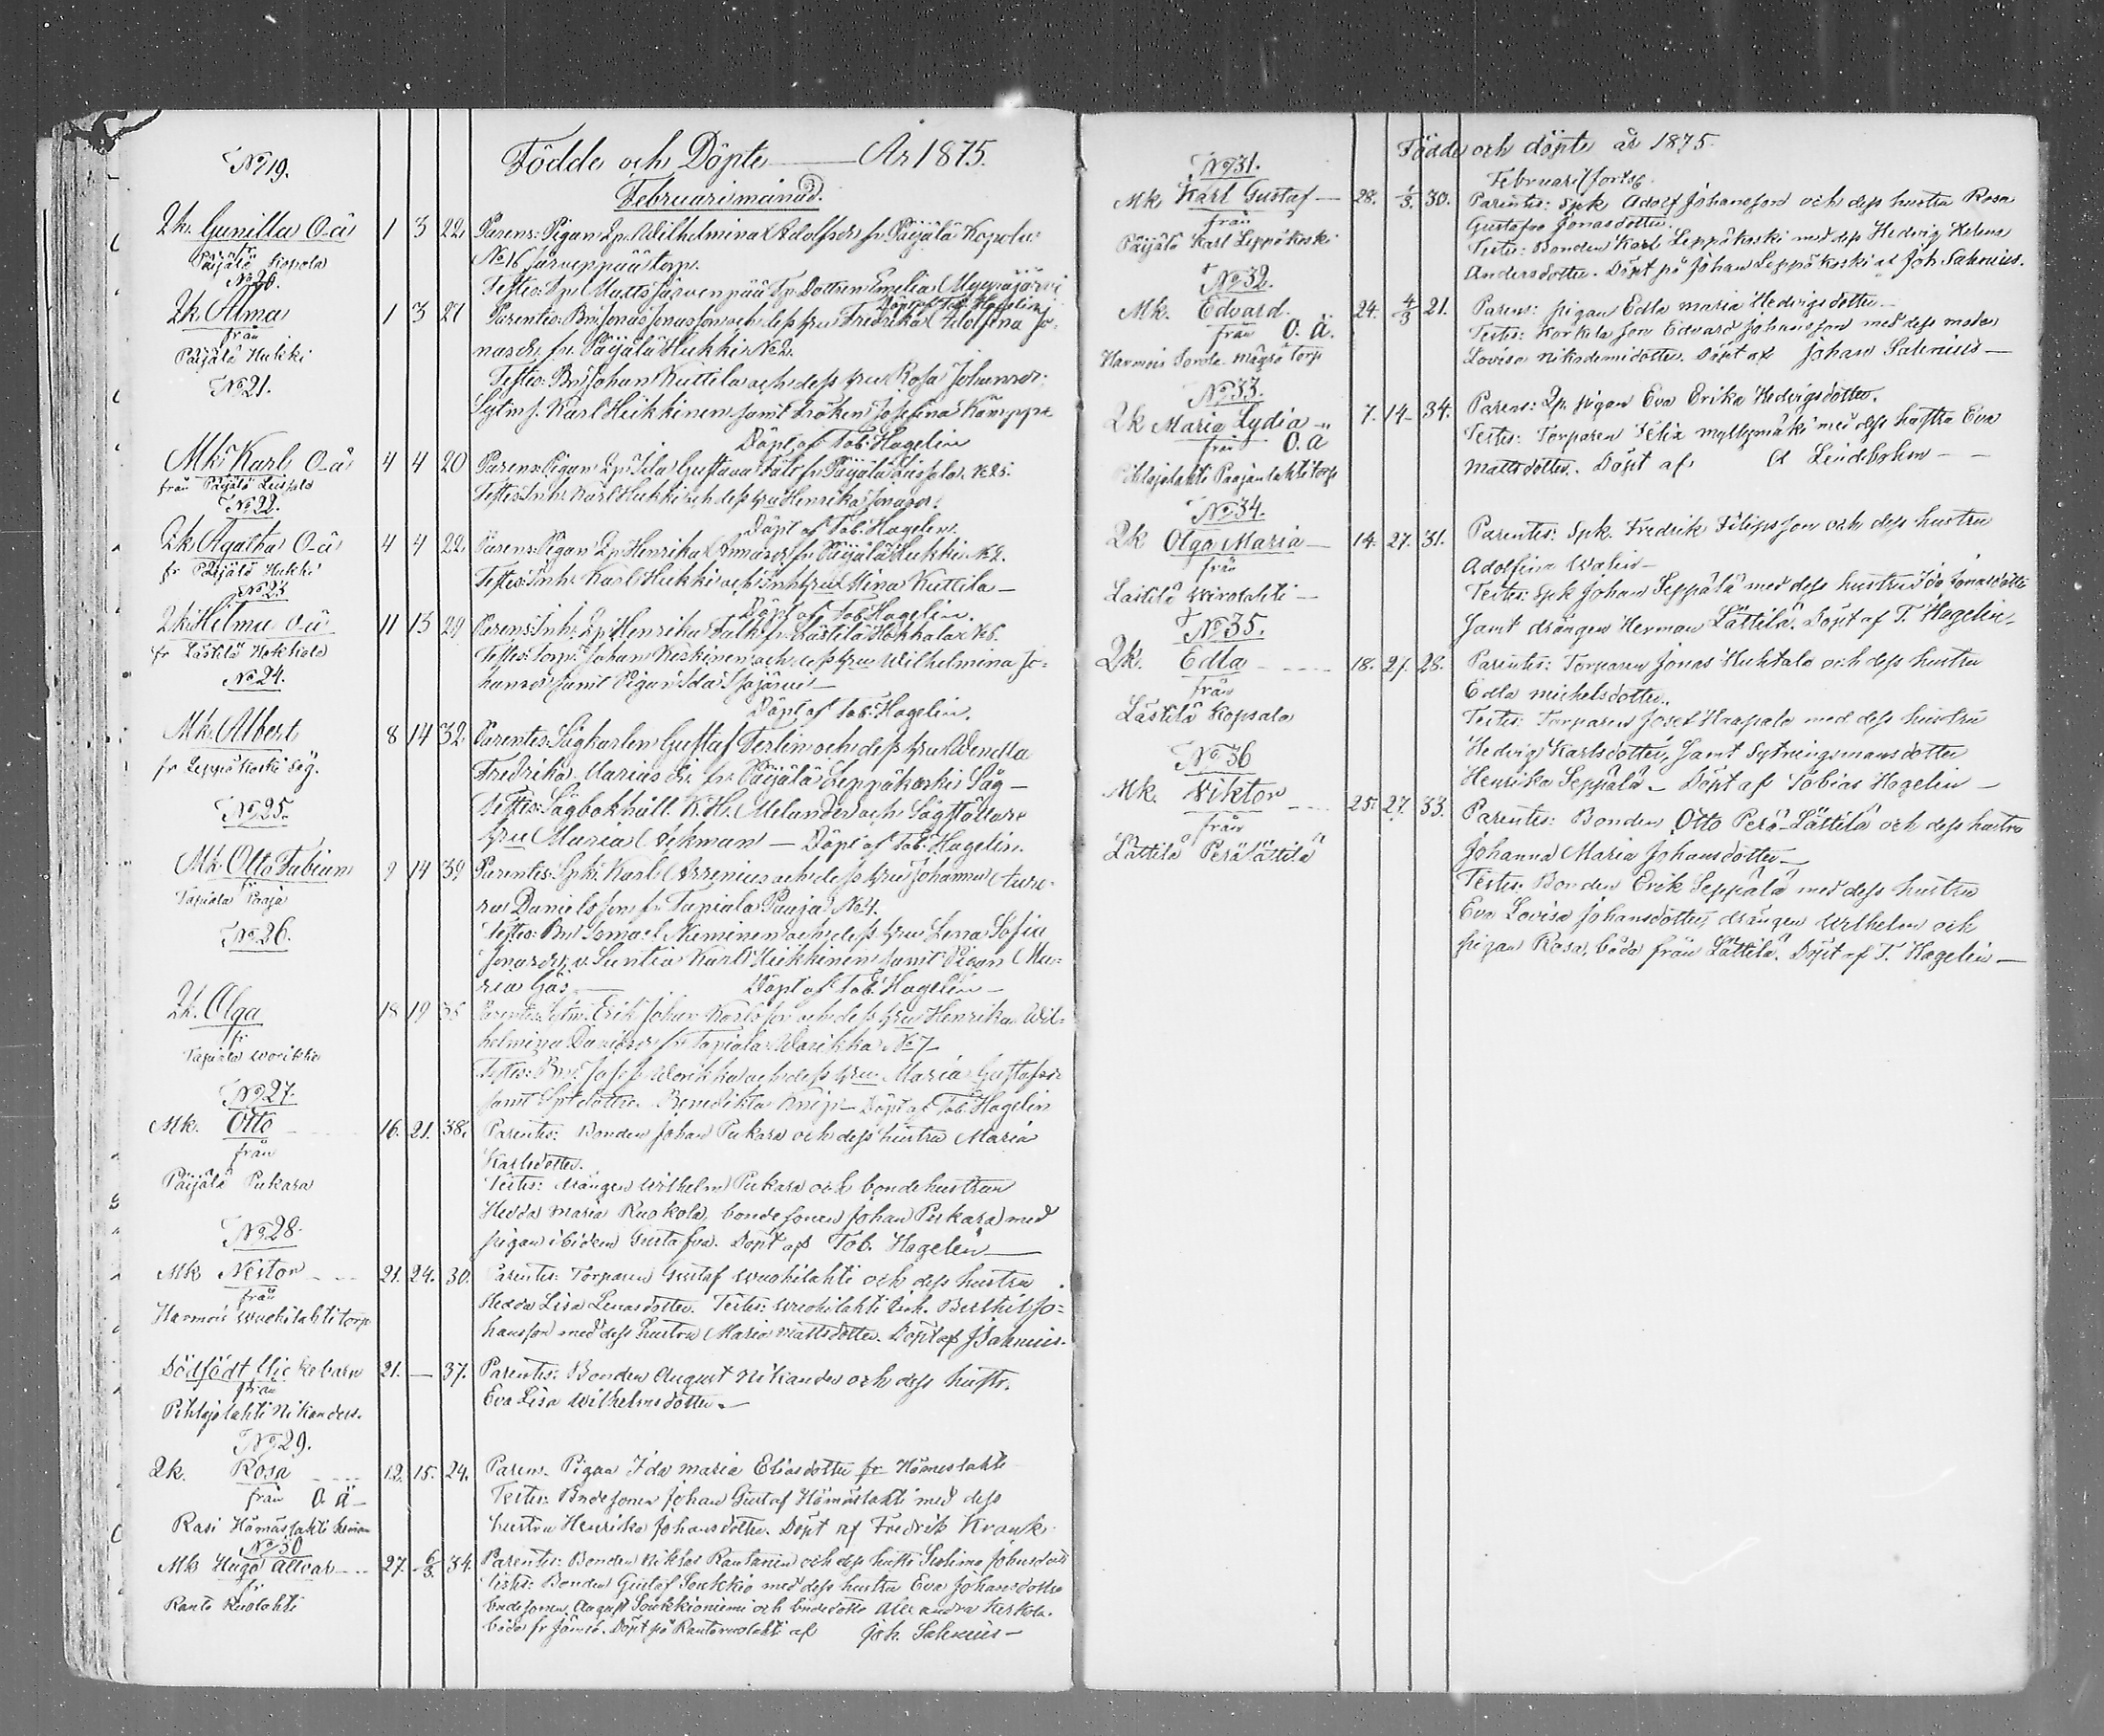 Födde och Döpte — År 1875.
Februari månad.
No 19.
Qk. Gunilla O.ä 1 3 22 Parens: Pigan Lp. Wilhelmina Adolfsdr fr. Päijälä Kopola
fr
Päijälä Kopola
No 16 Järvenpää torp.
Testes: Lp. Matts Järvenpää Lp. Dottren Emelia Myllyjärvi
Döpt af Tob. Hagelin
No 20.
Qk Alma 1 3 27 Parentes: Bn. Jonas Jonasson och dess hru Fredrika Adolfina Jo-
från
Päijälä Hukki
nasdr. fr. Päijälä Hukki No 2.
Testes: Bn. Johan Kuttila och dess hru Rosa Johansdr.
Sytn. f. Karl Heikkinen samt Fröken Josefina Kämppe
Döpt af Tob. Hagelin
No 21.
Mk Karl O-ä 4 4 20 Parens: Pigan Lp. Ida Gustava Fält fr. Päijälä Leispola No 25.
från Päijälä Leispola
Testes: Inh. Karl Hukki och dess hru Henrika Jonasdr.
Döpt af Tob. Hagelin.
No 22.
Qk Agatha O-ä 4 4 22 Parens: Pigan Lp. Henrika Ammasdr fr. Päijälä Hukki No 2.
fr Päijälä Hukki
Testes: Inh. Karl Hukki och Inh. hru Mina Kuttila —
Döpt af Tob. Hagelin.
No 23
Qk Hilma O.ä 11 13 29 Parens: Inh. Lp. Henrika Falk fr. Lästilä Hokkala No 6.
fr Lästilä Hokkala
Testes: Torp. Johan Keskinen och dess hru Wilhelmina Jo-
hansdr samt Pigan Ida Isojärvi —
Döpt af Tob. Hagelin.
No 24.
Mk. Albert 8 14 32 Parentes: Sågkarlen Gustaf Ferlin och dess hru Wendla
fr Leppäkoski såg.
Fredrika Mariasdr. fr. Päijälä Leppäkoski Såg —
Testes: Sågbokhåll. K. H. Melander och Sågställare
hru Maria Ackman — Döpt af Tob. Hagelin.
No 25.
Mk. Otto Fabian 9 14 39 Parentes: Spk. Karl Arrenius och dess hru Johanna Auro-
fr
Tapiala Paaja
ra Danielsson fr. Tapiala Paaja No 4.
Testes: Bn. Ismael Nieminen och dess hru Lena Sofia
Jonasdr, v. Suntia Karl Heikkinen samt Pigan Ma-
ria Gås — Döpt af Tob. Hagelin —
No 26.
Qk. Olga 18 19 35 Parentes: Sytn. Erik Johan Karlsson och dess hru Henrika Wil-
fr
Tapiala Worikka
helmina Davidsdr fr Tapiala Worikka No 7 —
Testes: Bn. Josef Worikka och dess hru Maria Gustafsdr
samt Spk dottren Benedikta Knip — Döpt af Tob. Hagelin
No 27.
Mk. Otto 16. 21. 38. Parentes: Bonden Johan Pukara och dess hustru Maria
från
Päijälä Pukara
Karlsdotter.
Testes: drängen Wilhelm Pukara och bondehustrun
Hedda Maria Ruokola, bondesonen Johan Pukara med
pigan ibidem Gustafva. Döpt af Tob. Hagelin —
No 28.
Mk Nestor 21. 24. 30. Parentes: Torparen Gustaf Wuohilahti och dess hustru
från
Harmois Wuohilahti torp
Hedda Lisa Lenasdotter. Testes: Wuohilahti Inh. Berthil Jo-
hansson med dess hustru Maria Mattsdotter. Döpt af J Sahenius.
Dödfödt flickebarn 21. — 37. Parentes: Bonden August Nikander och dess hustr.
från
Pihlajalahti Nikander.
Eva Lisa Wilhelmsdotter. —
No 29.
Qk. Rosa 12. 15. 24. Parens. Pigan Ida Maria Eliasdotter fr Hämeslahti
från O. ä —
Rasi Hämäslahti
Testes: Bndesonen Johan Gustaf Hämäslahti med dess
hustru Henrika Johansdotter. Döpt af Fredrik Krank
No 30
Mk Hugo Allvar 27. 6/3. 34. Parentes: Bonden Niklas Rantanen och dess hustr Serlima Johansdotter
fr
Ranta Ruolahti
Testes: Bonden Gustaf Soukkio med dess hustru Eva Johansdotter
bndesonen August Soukkioniemi och bndedotter Alexandra Kerkola.
båda fr Jämsä. Döpt på Rantaruolahti af Joh. Sahenius —
Födde och döpte år 1875.
Februari (forts.
No 31.
Mk Karl Gustaf — 28. 1/3. 30. Parentes: Spk Adolf Johansson och dess hustru Rosa
från
Päijälä Karl Leppäkoski
Gustafva Jonasdotter.
Testes: Bonden Karl Leppäkoski med dess Hedvig Helena
Andersdotter. Döpt på Johan Leppäkoski af Joh. Sahenius.
No 32.
Mk. Edvard 24. 4/3 21. Parens: pigan Edla Maria Hedvigsdotter —
från O. ä.
Harmois torp
Testes: Korkela son Edvard Johansson med dess moder
Lovisa Nikodemidotter. Döpt af Johan Sahenius —
No 33.
Qk Maria Lydia 7. 14. 34. Parens: Lp. pigan Eva Erika Hedvigsdotter.
från O. ä
Pihlajalahti Paajanlahti torp
Testes: Torparen Felix Myllymäki med dess hustru Eva
Mattsdotter. Döpt af A Lindebohm —
No 34.
Qk Olga Maria — 14. 27. 31. Parentes: Spk. Fredrik Filipsson och dess hustru
från
Lästilä Wirolahti —
Adolfina Walin —
Testes: Spk Johan Seppälä med dess hustru Ida Jonasdotter
samt drängen Herman Lättilä. Döpt af T. Hagelin —
No 35.
Qk. Edla 18. 27. 28. Parentes: Torparen Jonas Huhtala och dess hustru
från
Lästilä Kopsala
Edla Michelsdotter.
Testes: Torparen Josef Haapala med dess hustru
Hedvig Karlsdotter, samt Sytningsmansdotter
Henrika Seppälä — Döpt af Tobias Hagelin —
No 36
Mk. Viktor 25. 27. 33. Parentes: Bonden Otto Perä-Lättilä och dess hustru
från
Lättilä Perälättilä
Johanna Maria Johansdotter —
Testes: Bonden Erik Seppälä med dess hustru
Eva Lovisa Johansdotter, drängen Wilhelm och
pigan Rosa, båda från Lättilä. Döpt af T. Hagelin —